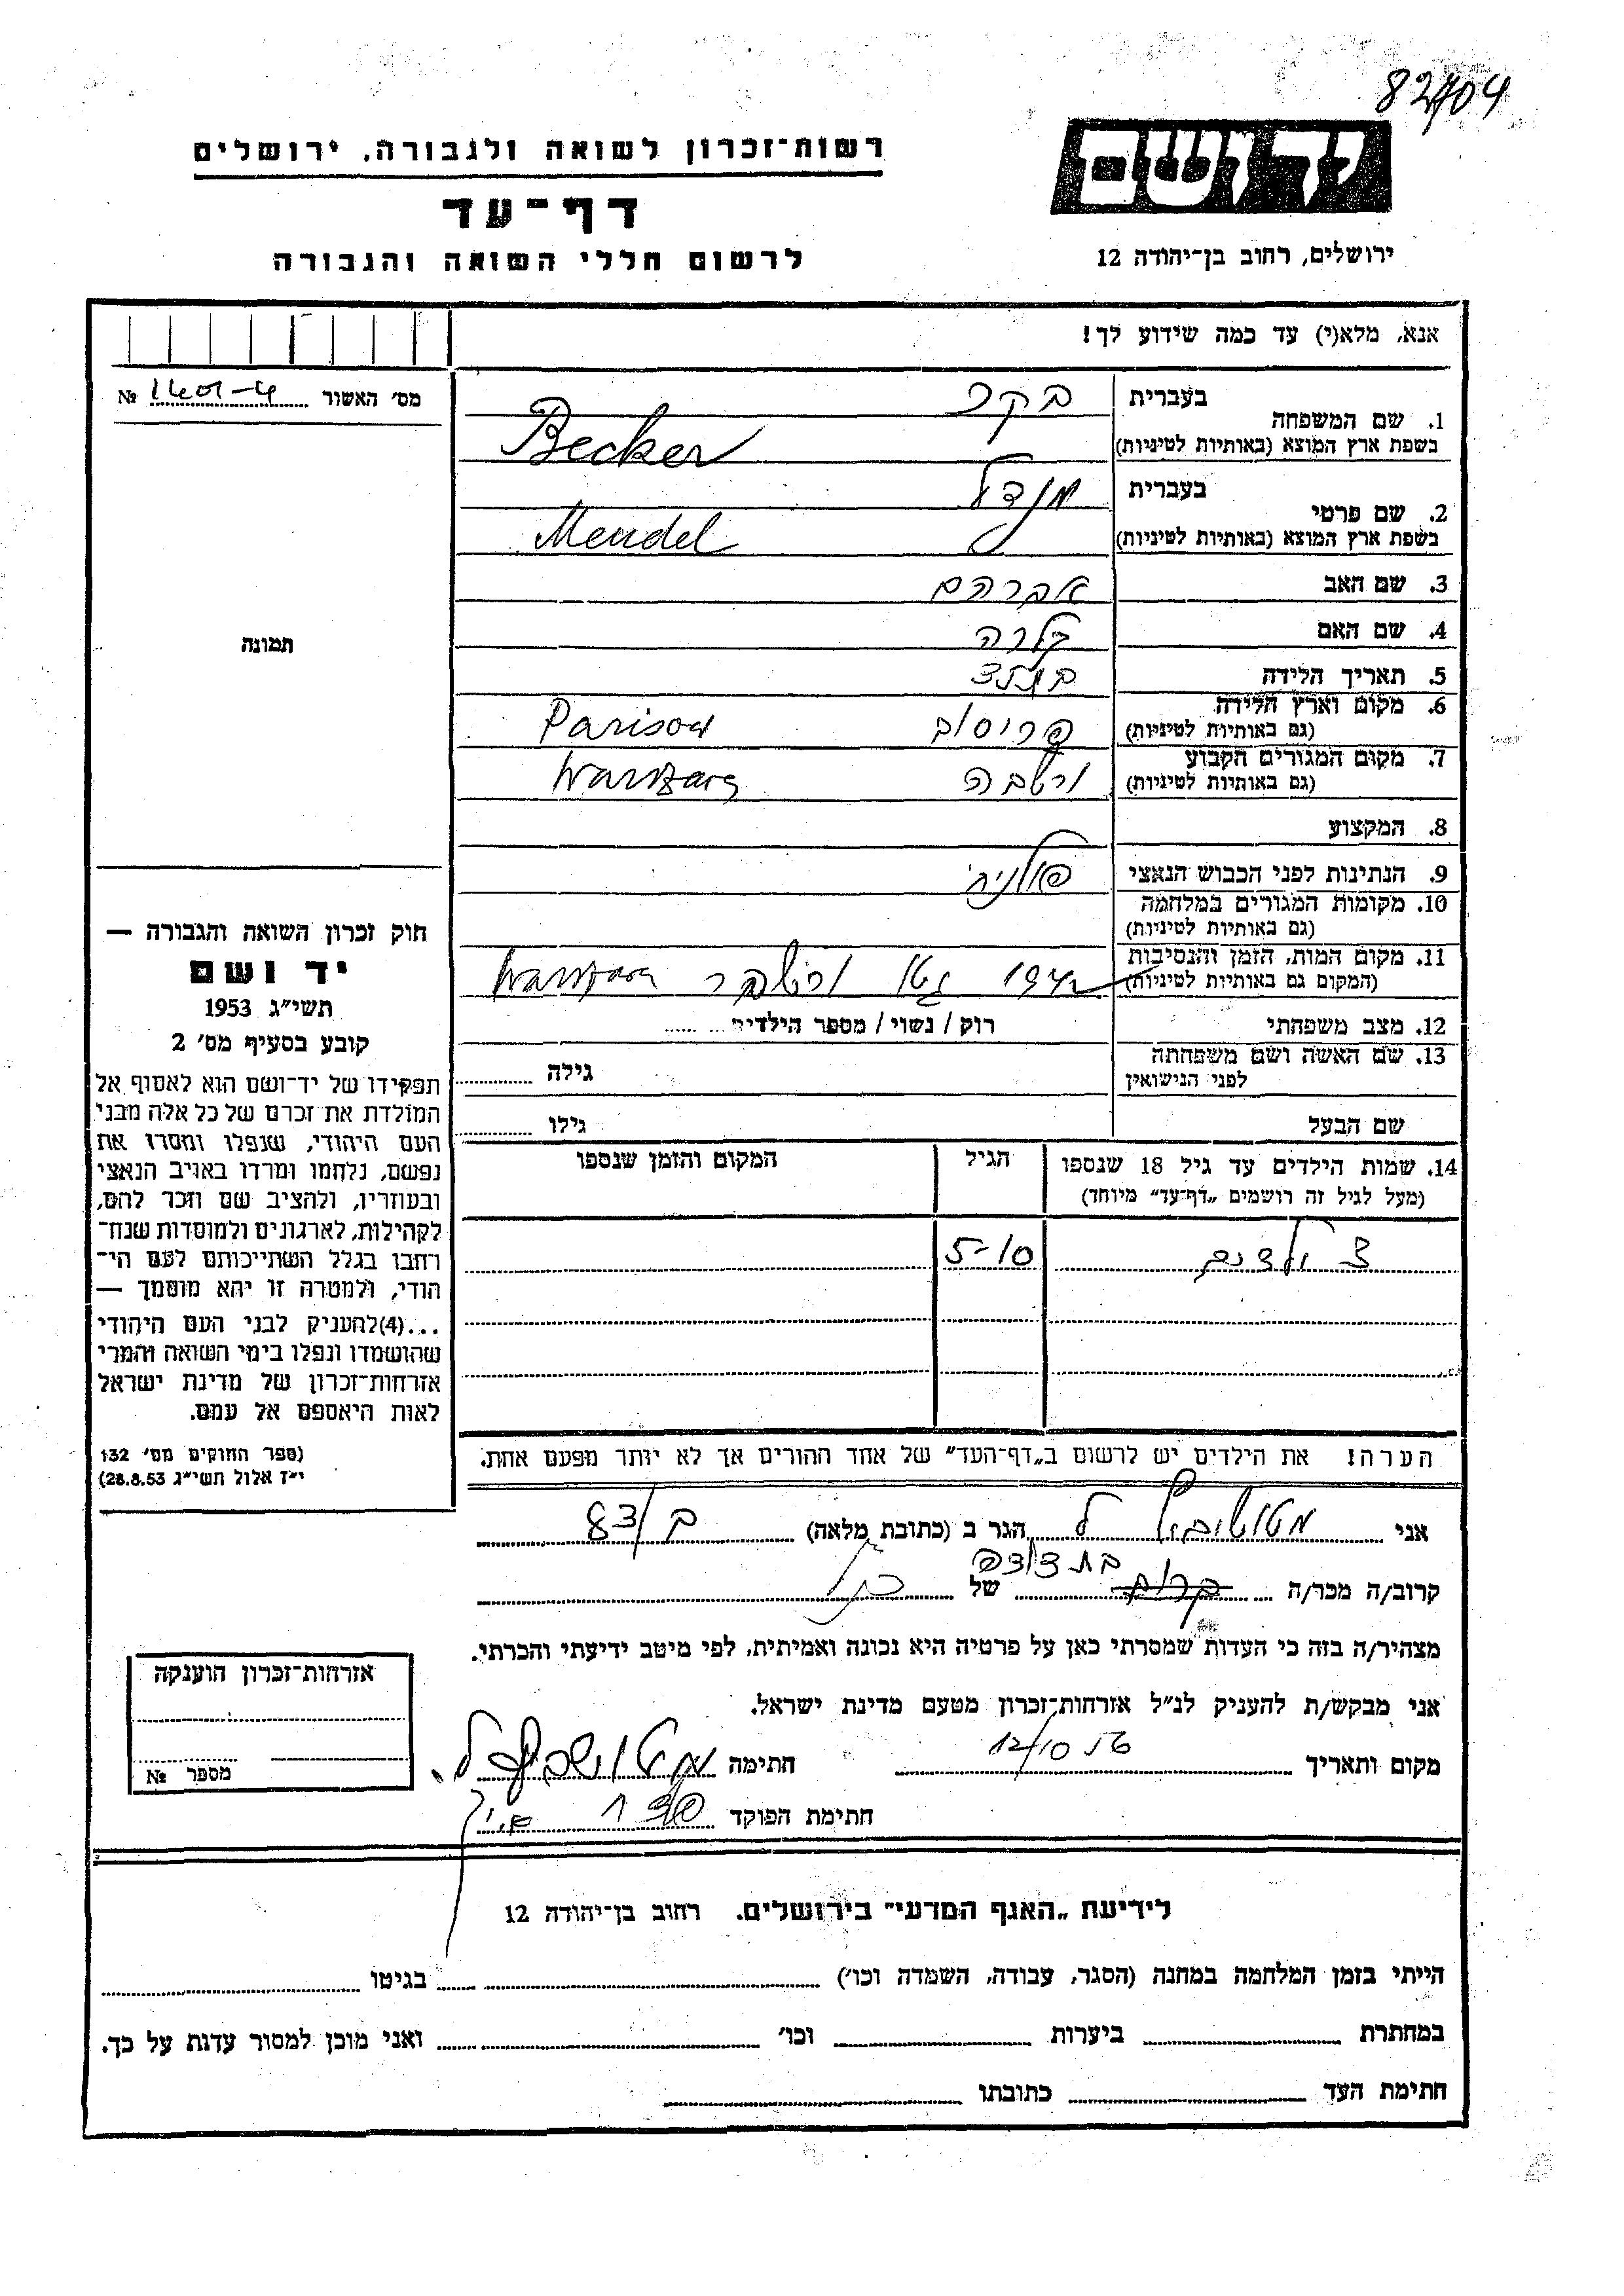 82/704
יד ושם
רשות־זכרון לשואה ולגבורה, ירושלים
דף־עד
לרשום חללי השואה והגבורה
ירושלים, רחוב בן־יהודה 12
אנא, מלא(י) עד כמה שידוע לך!
מס' האשור № 1401-4
תמונה
1. שם המשפחה
בעברית בקר
בשפת ארץ המוצא (באותיות לטיניות) Becker
2. שם פרטי
בעברית מנדל
בשפת ארץ המוצא (באותיות לטיניות) Mendel
3. שם האב אברהם
4. שם האם קלרה
5. תאריך הלידה
6. מקום וארץ הלידה פריסוב Parisow
(גם באותיות לטיניות)
7. מקום המגורים הקבוע ורשבה
(גם באותיות לטיניות)
8. המקצוע
9. הנתינות לפני הכבוש הנאצי פולנית
10. מקומות המגורים במלחמה
(גם באותיות לטיניות)
11. מקום המות, הזמן והנסיבות 1942 גטו ורשבה
(המקום גם באותיות לטיניות)
12. מצב משפחתי רוק / נשוי / מספר הילדים
13. שם האשה ושם משפחתה
לפני הנישואין גילה
שם הבעל גילו
14. שמות הילדים עד גיל 18 שנספו הגיל המקום והזמן שנספו
(מעל לגיל זה רושמים „דף־עד" מיוחד)
5-10
הערה! את הילדים יש לרשום ב„דף־העד" של אחד ההורים אך לא יותר מפעם אחת.
חוק זכרון השואה והגבורה —
יד ושם
תשי״ג 1953
קובע בסעיף מס' 2
תפקידו של יד־ושם הוא לאסוף אל
המולדת את זכרם של כל אלה מבני
העם היהודי, שנפלו ומסרו את
נפשם, נלחמו ומרדו באויב הנאצי
ובעוזריו, ולהציב שם וזכר להם,
לקהילות, לארגונים ולמוסדות שנח־
רחבו בגלל השתייכותם לעם הי־
הודי, ולמטרה זו יהא מוסמך —
...(4)להעניק לבני העם היהודי
שהושמדו ונפלו בימי השואה והמרי
אזרחות־זכרון של מדינת ישראל
לאות היאספם אל עמם.
(ספר החוקים מס' 132
י״ז אלול תשי״ג 28.8.53)
אני הגר ב (כתובת מלאה)
קרוב/ה מכר/ה בת דודה של
מצהיר/ה בזה כי העדות שמסרתי כאן על פרטיה היא נכונה ואמיתית, לפי מיטב ידיעתי והכרתי.
אני מבקש/ת להעניק לנ״ל אזרחות־זכרון מטעם מדינת ישראל.
מקום ותאריך 12/10 חתימה
חתימת הפוקד
אזרחות־זכרון הוענקה
מספר №
לידיעת „האגף המדעי" בירושלים. רחוב בן־יהודה 12
הייתי בזמן המלחמה במחנה (הסגר, עבודה, השמדה וכו') בגיטו
במחתרת ביערות וכו' ואני מוכן למסור עדות על כך.
חתימת העד כתובתו